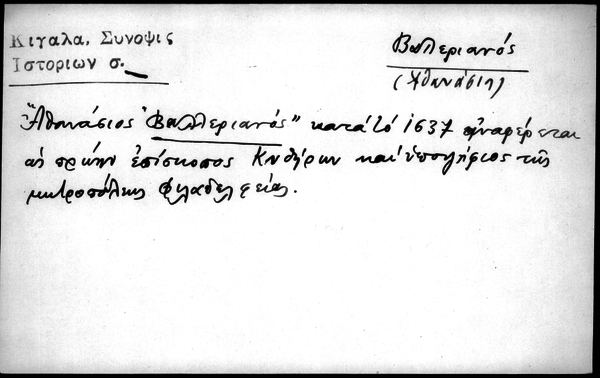 Κιγαλα, Συνοψις
Ἱστοριων σ.
Βαλλεριανός
(Ἀθανάσιος)
"Ἀθανάσιος Βαλλεριανός" κατὰ τὸ 1637 ἀναφέρεται
ὡς πρώην ἐπίσκοπος Κυθήρων καὶ ὑποψήφιος τῆς
μητροπόλεως Φιλαδελφείας.